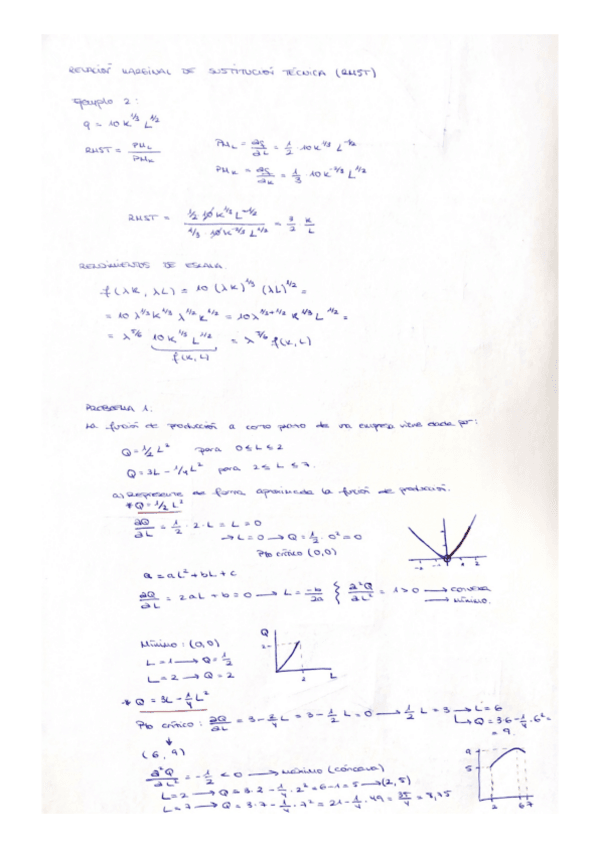 RELACIÓN MARGINAL DE SUSTITUCIÓN TÉCNICA (RMST)
Ejemplo 2:
q = 10 K^1/3 L^1/2
RMST = PML / PMK
PML = ∂q/∂L = 1/2 · 10 K^1/3 L^-1/2
PMK = ∂q/∂K = 1/3 · 10 K^-2/3 L^1/2
RMST = (1/2 · 10 K^1/3 L^-1/2) / (1/3 · 10 K^-2/3 L^1/2) = 3/2 K/L
RENDIMIENTOS DE ESCALA.
f(λK, λL) = 10 (λK)^1/3 (λL)^1/2 =
= 10 λ^1/3 K^1/3 λ^1/2 L^1/2 = 10 λ^1/3+1/2 K^1/3 L^1/2 =
= λ^5/6 10 K^1/3 L^1/2 = λ^5/6 f(K, L)
f(K, L)
PROBLEMA 1.
La función de producción a corto plazo de una empresa viene dada por:
Q = 1/2 L² para 0 ≤ L ≤ 2
Q = 3L - 1/4 L² para 2 ≤ L ≤ 7.
a) Represente de forma aproximada la función de producción.
* Q = 1/2 L²
∂Q/∂L = 1/2 · 2 · L = L = 0
→ L = 0 → Q = 1/2 · 0² = 0
Pto crítico (0,0)
-2 -1 1 2
Q = aL² + bL + c
∂Q/∂L = 2aL + b = 0 → L = -b/2a { ∂²Q/∂L² = 1 > 0 → convexa
→ mínimo.
Mínimo: (0,0)
L = 1 → Q = 1/2
L = 2 → Q = 2
Q
2
2 L
* Q = 3L - 1/4 L²
Pto crítico: ∂Q/∂L = 3 - 2/4 L = 3 - 1/2 L = 0 → 1/2 L = 3 → L = 6
↳ Q = 3·6 - 1/4 · 6² =
= 9.
(6, 9)
∂²Q/∂L² = -1/2 < 0 → máximo (cóncava)
L = 2 → Q = 3·2 - 1/4 · 2² = 6 - 1 = 5 → (2, 5)
L = 7 → Q = 3·7 - 1/4 · 7² = 21 - 1/4 · 49 = 35/4 = 8,75
9
5
2 6 7